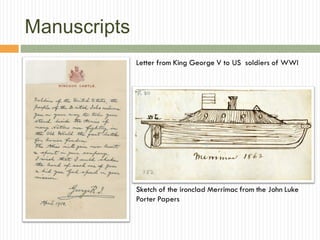 Manuscripts
Letter from King George V to US soldiers of WWI
WINDSOR CASTLE.
Soldiers of the United States, the
people of the British Isles welcome
you on your way to take your
stand beside the Armies of
many Nations now fighting in
the Old World the great battle
for human freedom.
The Allies will gain new heart
& spirit in your company.
I wish that I could shake
the hand of each one of you
& bid you God speed on your
mission.
George R.I.
April 1918.
Merrimac 1862
Sketch of the ironclad Merrimac from the John Luke
Porter Papers